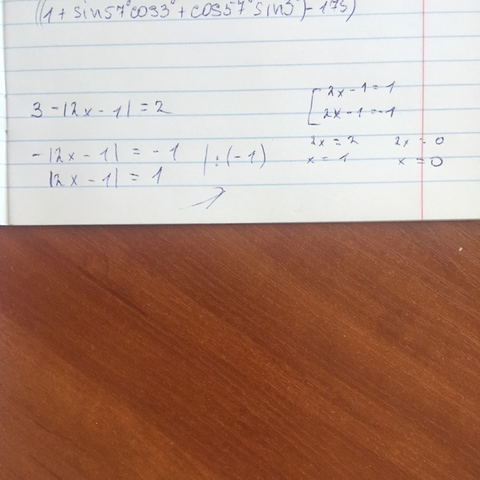 ((1 + sin57°cos3° + cos57°sin3°) - 1,75)
3 - |2x - 1| = 2
- |2x - 1| = - 1 | : (-1)
|2x - 1| = 1
[ 2x - 1 = 1
2x - 1 = -1
2x = 2 2x = 0
x = 1 x = 0